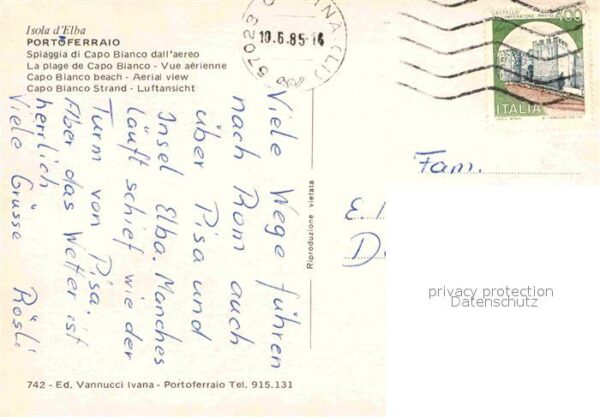 Isola d'Elba
PORTOFERRAIO
Spiaggia di Capo Bianco dall'aereo
La plage de Capo Bianco - Vue aérienne
Capo Bianco beach - Aerial view
Capo Bianco Strand - Luftansicht
57023
10.6.85-14
CASTELLO
IMPERATORE - PRATO
400
ITALIA
Viele Wege führen
nach Rom auch
über Pisa und
Insel Elba. Manches
läuft schief wie der
Turm von Pisa.
Aber das Wetter ist
herrlich
Viele Grüsse Rösli
Riproduzione vietata
Fam.
E.
D.
privacy protection
Datenschutz
742 - Ed. Vannucci Ivana - Portoferraio Tel. 915.131